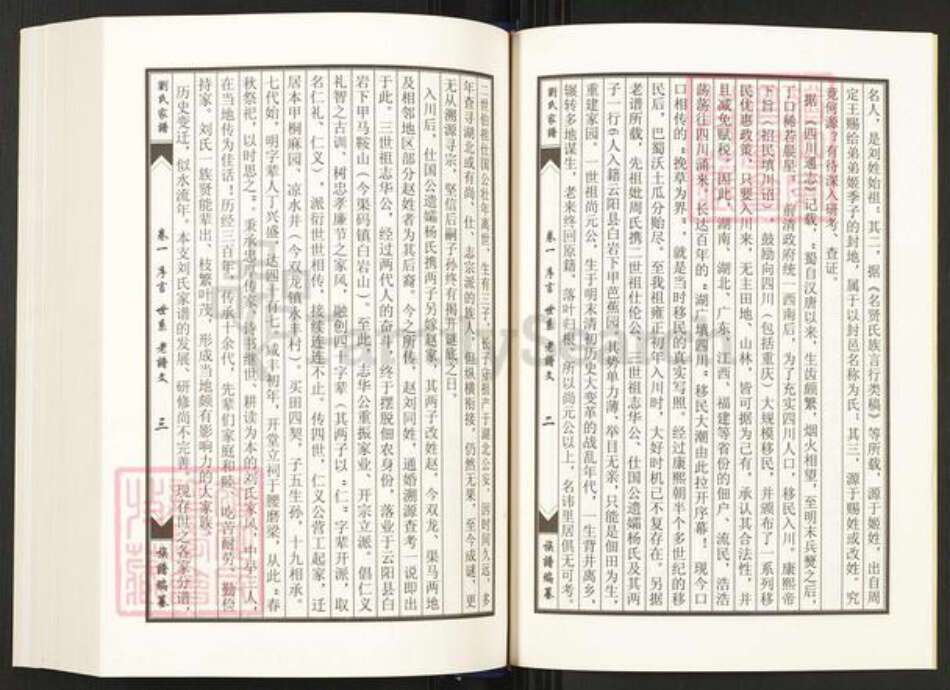 名人，是刘姓始祖；其二，据《名贤氏族言行类稿》等所载，源于姬姓，出自周
定王赐给弟弟姬季子的封地，属于以封邑名称为氏；其三，源于赐姓或改姓。究
竟何源？有待深入研考、查证。
据《四川通志》记载，“蜀自汉唐以来，生齿颇繁，烟火相望，至明末兵燹之后，
丁口稀若晨星”。前清政府统一西南后，为了充实四川人口，移民入川。康熙帝
下旨《招民填川诏》，鼓励向四川（包括重庆）大规模移民，并颁布了一系列移
民优惠政策，只要入川来，无主田地、山林，皆可据为己有，承认其合法性，并
且减免赋税。因此，湖南、湖北、广东、江西、福建等省份的佃户、流民，浩浩
荡荡往四川涌来，长达百年的“湖广填四川”移民大潮由此拉开序幕！现今口
口相传的“挽草为界”，就是当时移民的真实写照。经过康熙朝半个多世纪的移
民后，巴蜀沃土瓜分贻尽。至我祖雍正初年入川时，大好时机已不复存在。另据
老谱所载，先祖妣周氏携二世祖仕伦公、三世祖志华公、仕国公遗孀杨氏及其两
子一行6人入籍云阳县白岩下甲芭蕉园，其势单力薄，举目无亲，只能是佃田为生，
重建家园。一世祖尚元公，生于明末清初历史大变革的战乱年代，一生背井离乡，
辗转多地谋生，老来终回原籍，落叶归根，所以尚元公以上，名讳里居俱无可考。
劉氏家譜
卷一 序言 世系 老譜文
二
族譜編纂
二世伯祖仕国公壮年离世，生有三子，长子守祖产于湖北公安，因时间久远，多
年查寻湖北或有尚、仕、志宗派的族人，但纵横衔接，仍然无果，至今成谜，更
无从溯源寻宗，坚信后嗣子孙终有揭开谜底之日。
入川后，仕国公遗孀杨氏携两子另嫁赵家，其两子改姓赵，今双龙、渠马两地
及相邻地区部分赵姓者为其后裔。今之所传，赵刘同姓，通婚溯源查考一说即出
于此。三世祖志华公，经过两代人的奋斗，终于摆脱佃农身份，落业于云阳县白
岩下甲马鞍山（今渠码镇白岩山）。至此，志华公重振家业、开宗立派。倡仁义
礼智之古训，树忠孝廉节之家风，融创四十字辈（其两子以“仁”字辈开派，取
名仁礼、仁义），派衍世世相传，接续连连不止。传四世，仁义公营工起家，迁
居本甲桐麻园、凉水井（今双龙镇永丰村）。买田四契，子五生孙，十九相承。
七代始，明字辈人丁兴盛，达四十有七。咸丰初年，开堂立祠于腰磨梁，从此“春
秋祭祀，以时思之”。秉承忠厚传家、诗书继世、耕读为本的刘氏家风，中早三人，
在当地传为佳话！历经三百年，传承十余代，先辈们家庭和睦、吃苦耐劳、勤俭
持家。刘氏一族贤能辈出，枝繁叶茂，形成当地颇有影响力的大家族。
历史变迁，似水流年。本支刘氏家谱的发展、研修尚不完善，现存世之各家分谱，
劉氏家譜
卷一 序言 世系 老譜文
三
族譜編纂